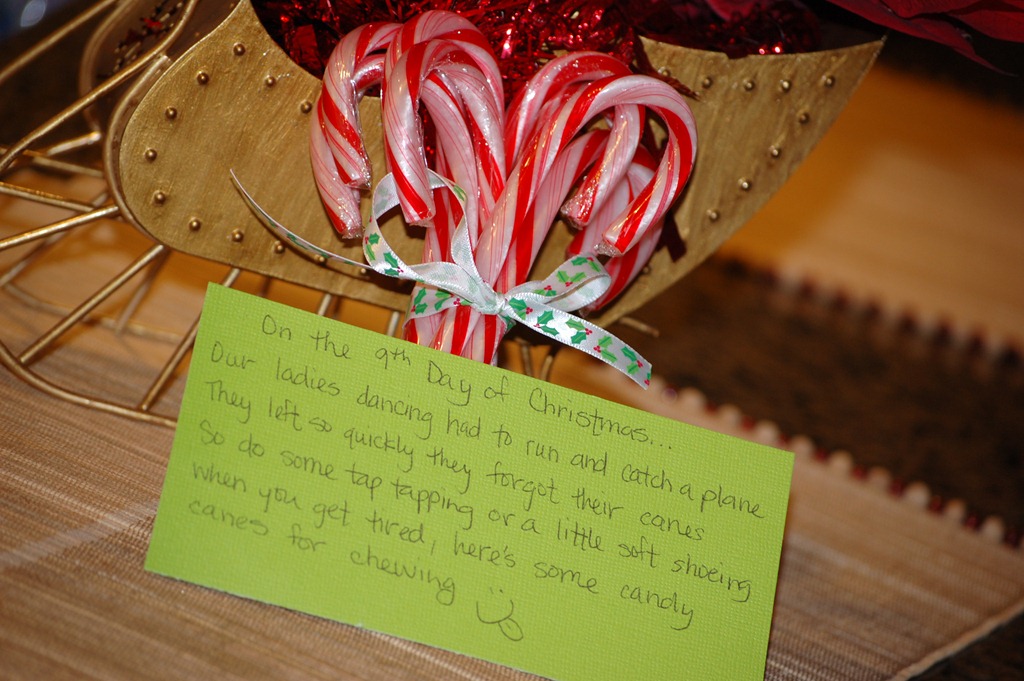 On the 9th Day of Christmas...
Our ladies dancing had to run and catch a plane
They left so quickly they forgot their canes
So do some tap tapping or a little soft shoeing
when you get tired, here's some candy
canes for chewing